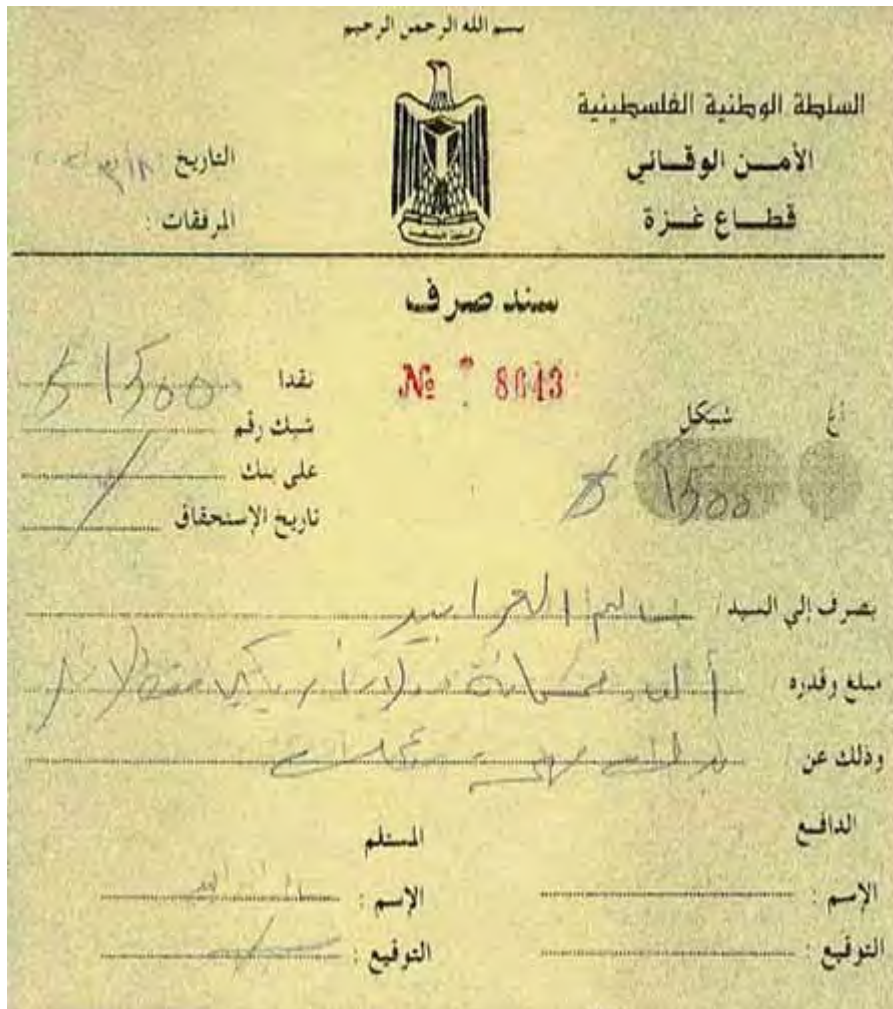 بسم الله الرحمن الرحيم
السلطة الوطنية الفلسطينية
الأمن الوقائي
قطاع غزة
التاريخ
المرفقات :
سند صرف
№ 8643
أغ شيكل
1500 $
نقدا 1500 $
شيك رقم
على بنك
تاريخ الإستحقاق
يصرف إلى السيد / سالم
مبلغ وقدره ألف خمسمائة دولار أمريكي فقط لا غير
وذلك عن /
الدافع
الإسم :
التوقيع :
المستلم
الإسم :
التوقيع :